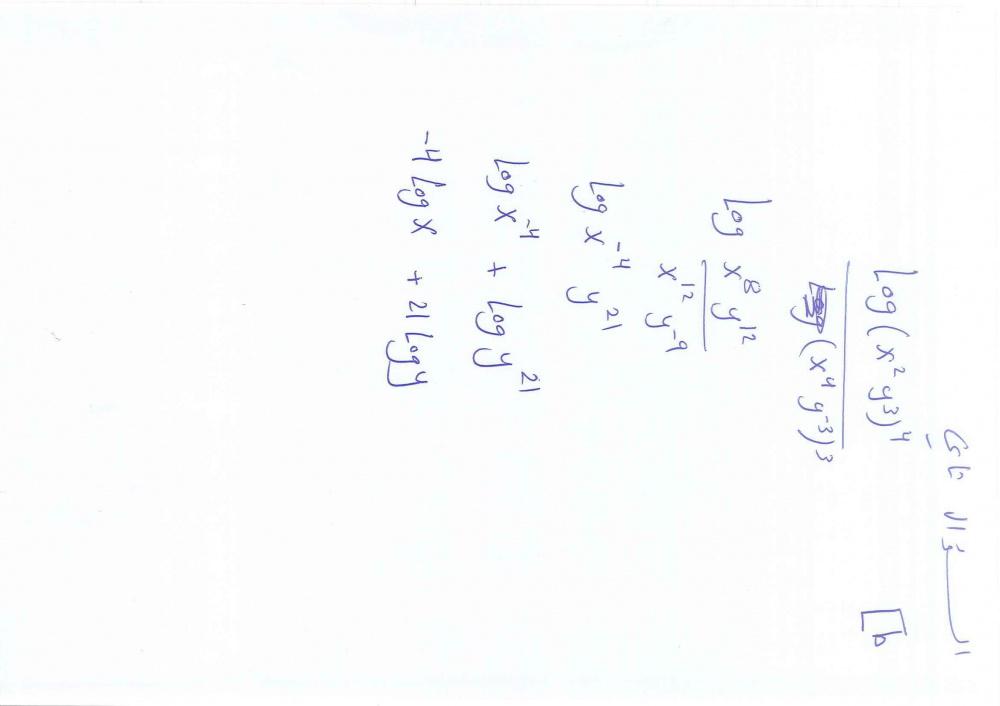 السؤال الثاني
b
log (x² y³)⁴ / (x⁴ y⁻³)³
log x⁸ y¹² / x¹² y⁻⁹
log x⁻⁴ y²¹
log x⁻⁴ + log y²¹
-4 log x + 21 log y